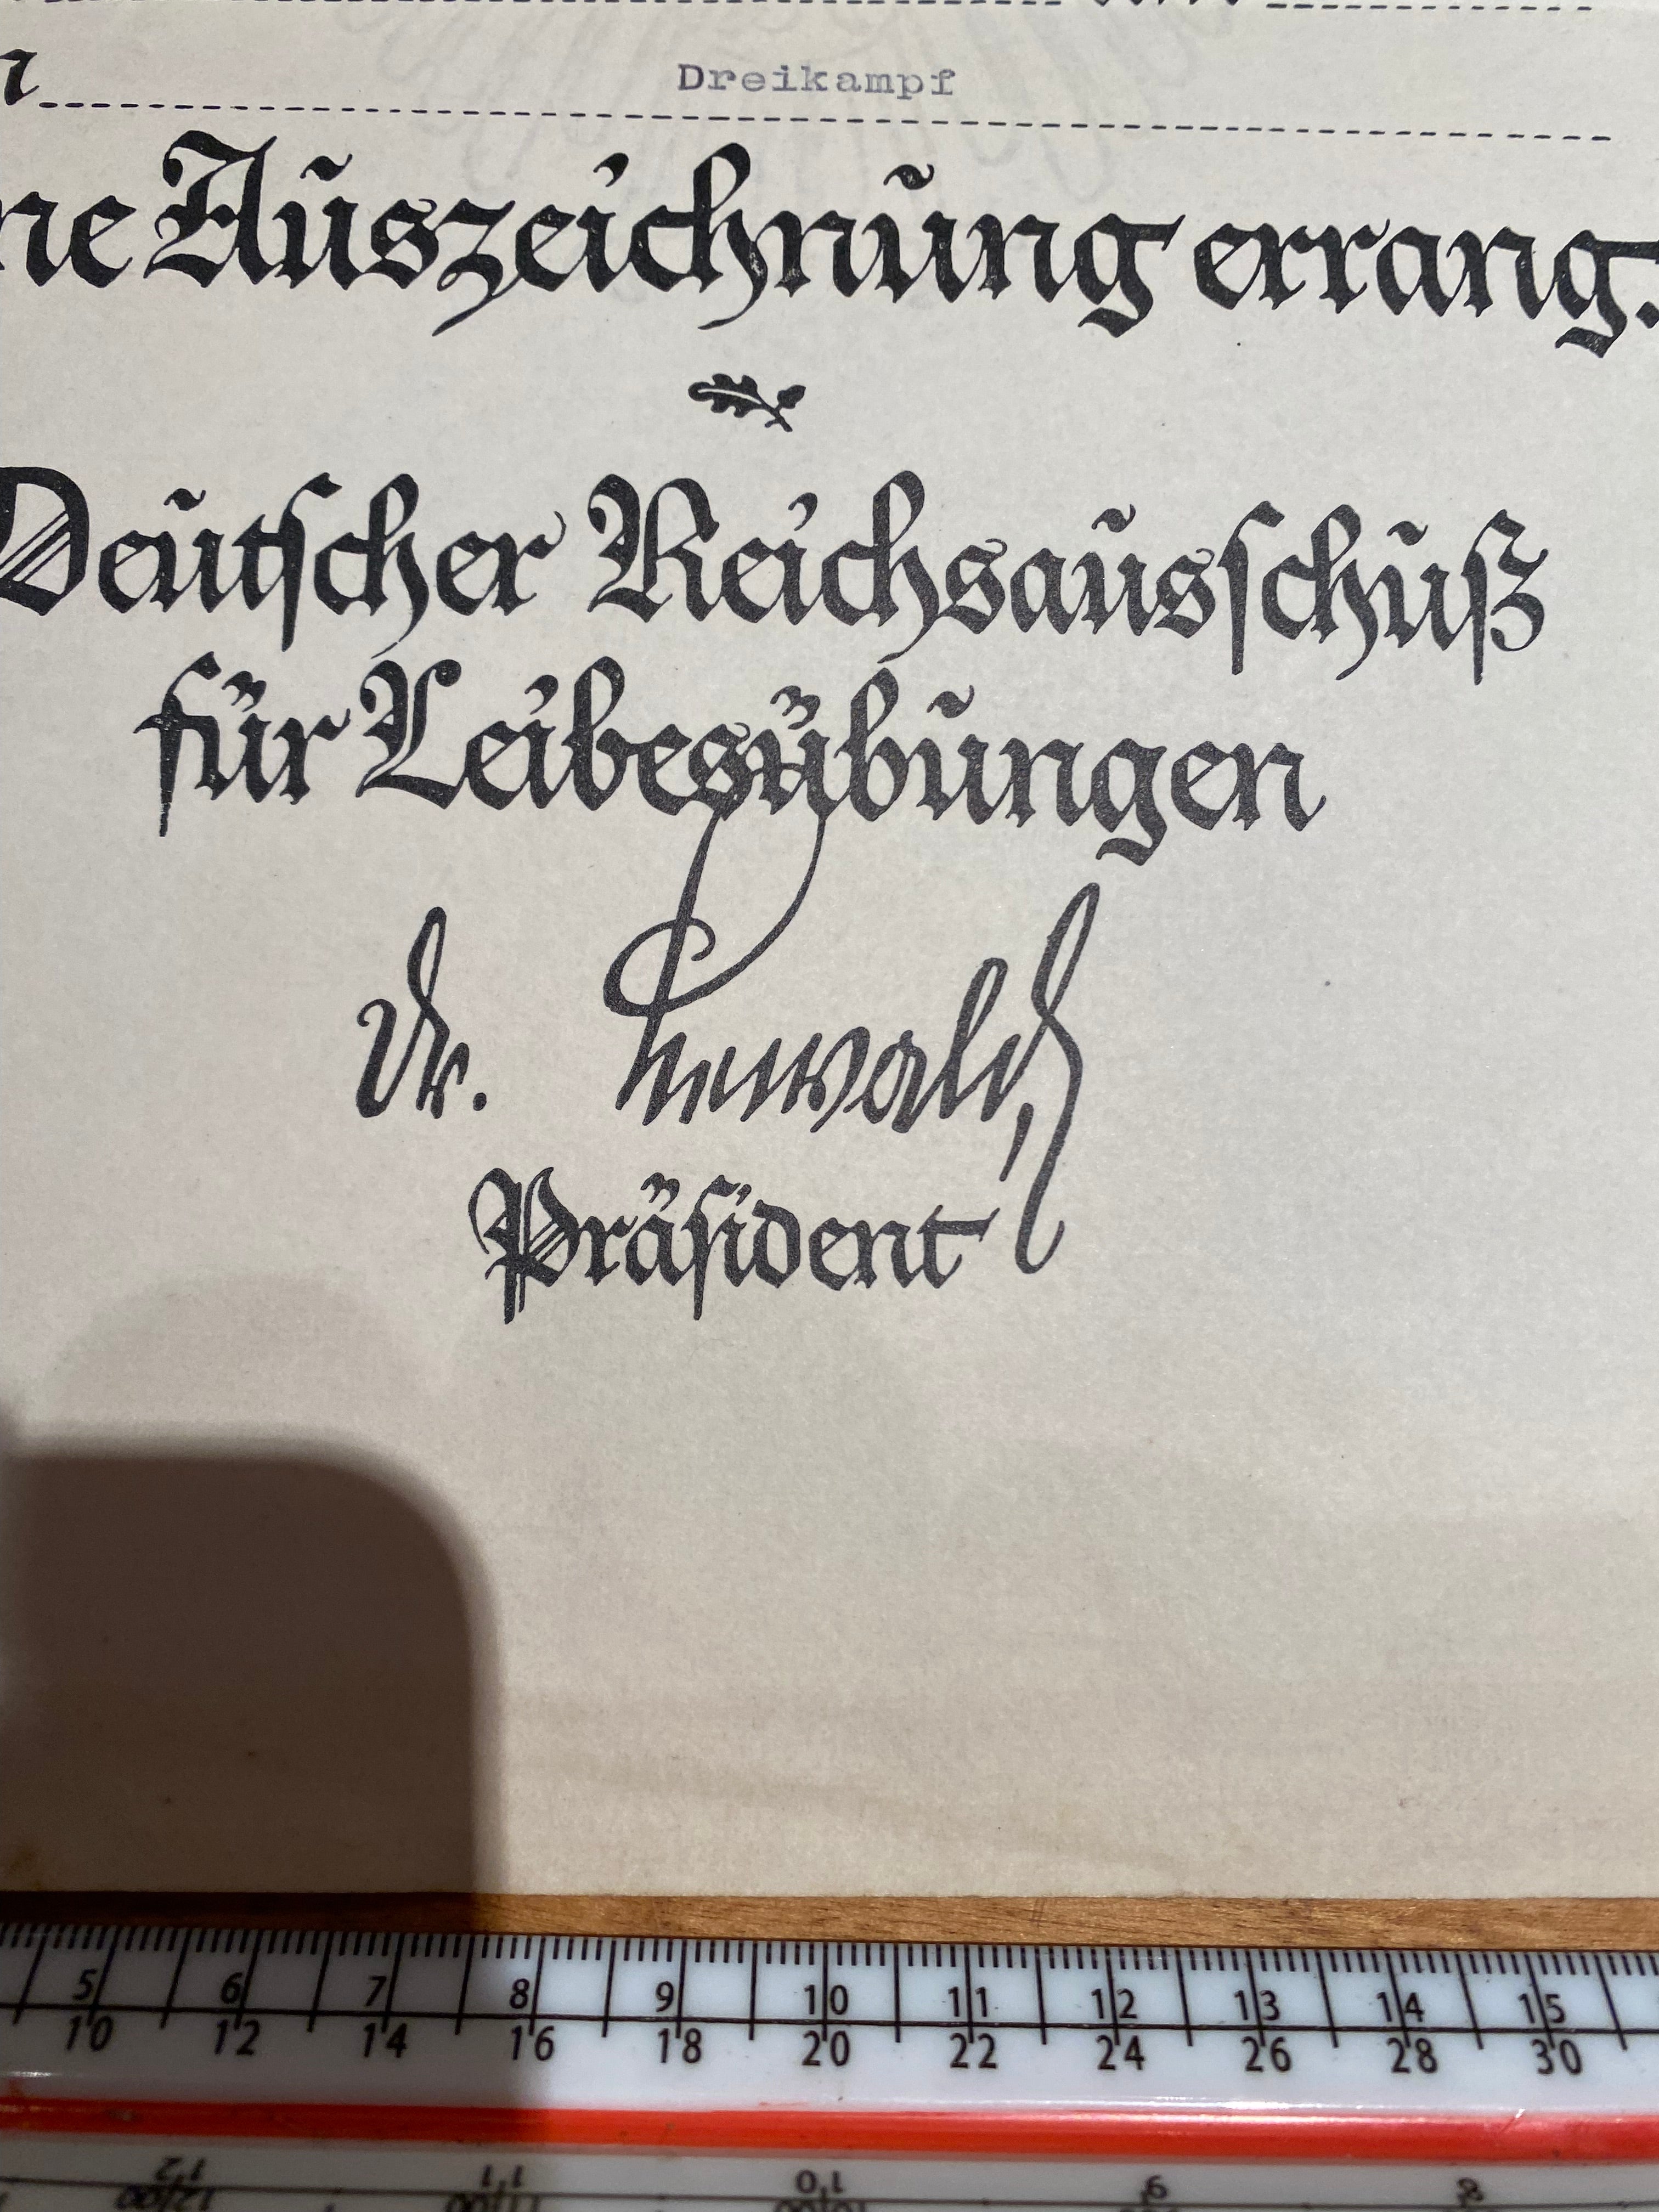 Dreikampf
ne Auszeichnung errang.
Deutscher Reichsausschuß
für Leibesübungen
Dr. Lewald
Präsident
5 6 7 8 9 10 11 12 13 14 15
10 12 14 16 18 20 22 24 26 28 30
12 11 10 9 8